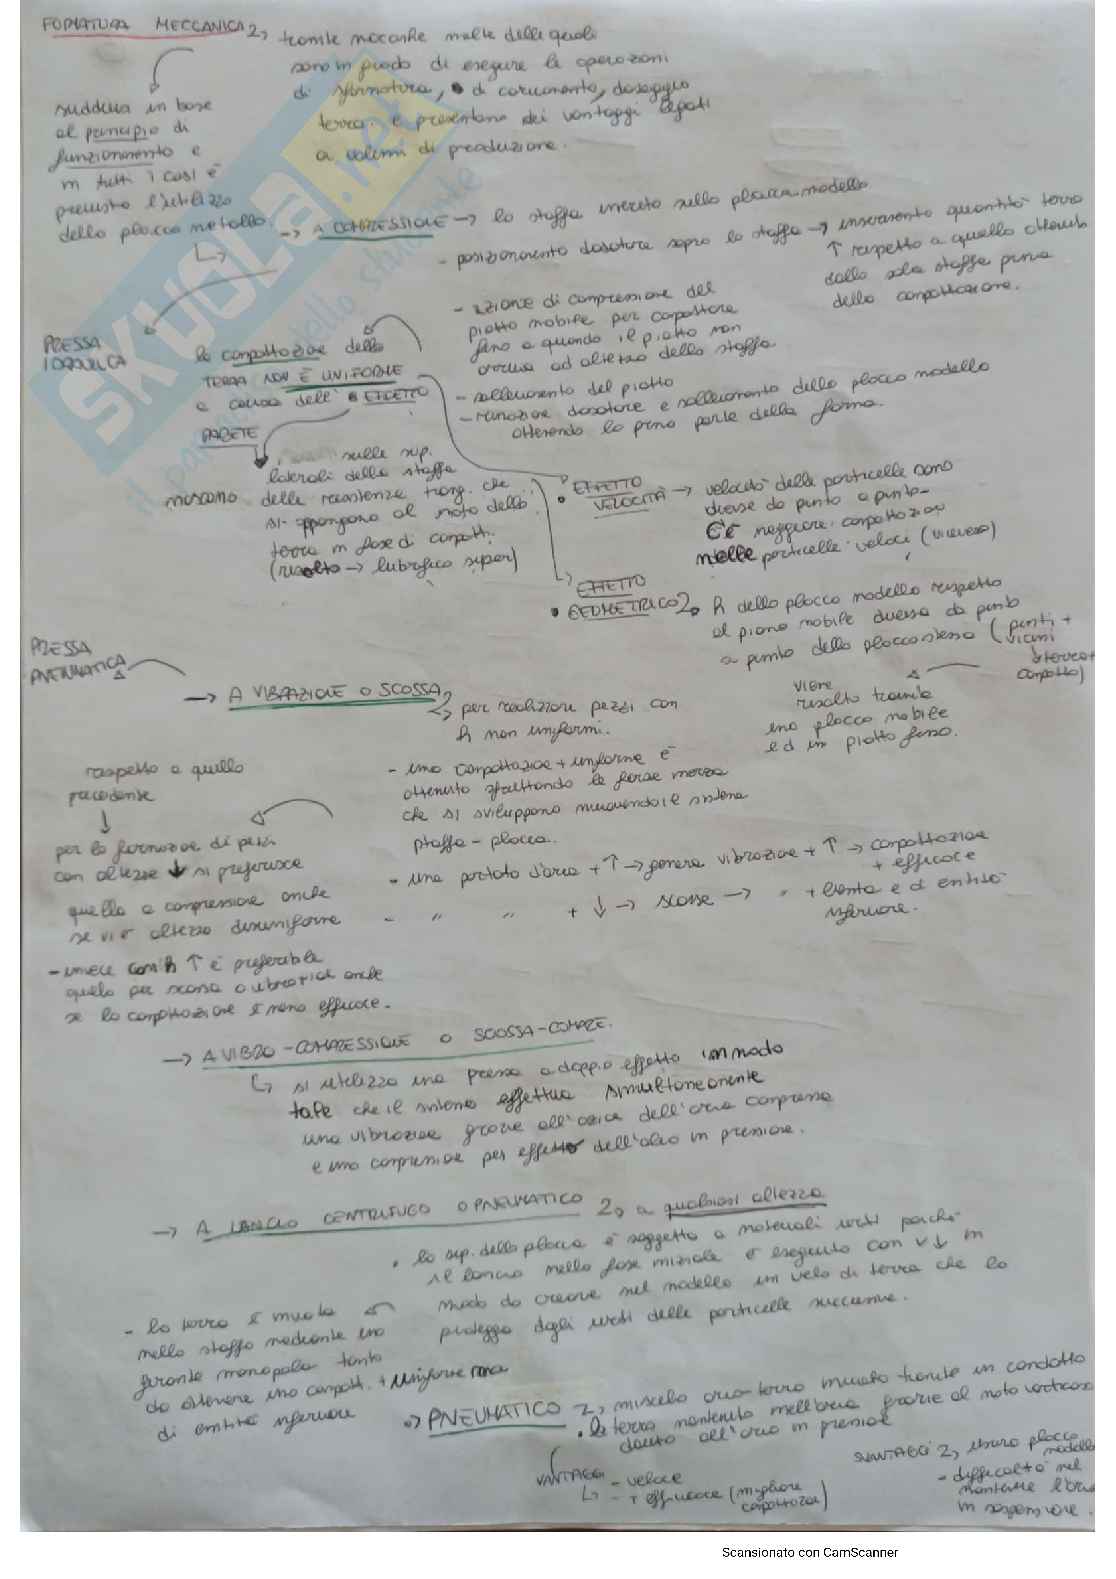 FORMATURA MECCANICA
tramite macchine molte delle quali
sono in grado di eseguire le operazioni
di sformatura, di caricamento, dosaggio
terra e presentano dei vantaggi legati
a volumi di produzione.
suddivisa in base
al principio di
funzionamento e
in tutti i casi è
previsto l'utilizzo
della placca metallo.
→ A COMPRESSIONE → la staffa inserita sulla placca modello
- posizionamento dosatore sopra la staffa → inserimento quantità terra
↑ rispetto a quella ottenib
dalla sola staffa prima
della compattazione.
- azione di compressione del
piatto mobile per compattare
fino a quando il piatto non
arriva ad altezza della staffa
- sollevamento del piatto
- rimozione dosatore e sollevamento della placca modello
ottenendo la prima parte della forma.
PRESSA
IDRAULICA
la compattazione della
TERRA NON È UNIFORME
a causa dell' EFFETTO
PARETE
sulle sup.
laterali della staffa
nascono delle resistenze tang. che
si oppongono al moto della
terra in fase di compatt.
(risolto → lubrifico superf)
• EFFETTO
VELOCITÀ → velocità delle particelle sono
diverse da punto a punto
C'è maggiore compattazione
nelle particelle veloci (viceversa)
• EFFETTO
GEOMETRICO
h della placca modello rispetto
al piano mobile diversa da punto
a punto della placca stessa (punti +
vicini
↓ terra +
compatta)
viene
risolto tramite
una placca mobile
ed un piatto fisso.
PRESSA
PNEUMATICA
→ A VIBRAZIONE O SCOSSA
per realizzare pezzi con
h non uniformi.
- una compattazione + uniforme è
ottenuta sfruttando le forze inerzia
che si sviluppano muovendo il sistema
staffa - placca.
- una portata d'aria + ↑ → genera vibrazione + ↑ → compattazione
+ efficace
- " " + ↓ → scosse → " + lenta e di entità
inferiore.
rispetto a quella
precedente
↓
per la formazione di pezzi
con altezze ↓ si preferisce
quella a compressione anche
se vi è altezza disuniforme
- invece con h ↑ è preferibile
quella per scossa o vibrazione anche
se la compattazione è meno efficace.
→ A VIBRO - COMPRESSIONE O SCOSSA - COMPR.
↳ si utilizza una pressa a doppio effetto in modo
tale che il sistema effettua simultaneamente
una vibrazione grazie all'azione dell'aria compressa
e una compressione per effetto dell'olio in pressione.
→ A LANCIO CENTRIFUGO O PNEUMATICO a qualsiasi altezza
• la sup. della placca è soggetta a notevoli urti perché
il lancio nella fase iniziale è eseguito con v ↓ in
modo da creare sul modello un velo di terra che lo
protegge dagli urti delle particelle successive.
- la terra è inviata
nella staffa mediante una
girante monopala tanto
da ottenere una compatt. + uniforme ma
di entità inferiore
PNEUMATICO miscela aria-terra inviata tramite un condotto
• la terra mantenuta nell'aria grazie al moto vorticoso
dovuto all'aria in pressione
VANTAGGI
- veloce
- + efficace (migliore
compattazione)
SVANTAGGI usura placca
modello
- difficoltà nel
mantenere l'aria
in sospensione.
SKUOLA.net
il paradiso dello studente
Scansionato con CamScanner